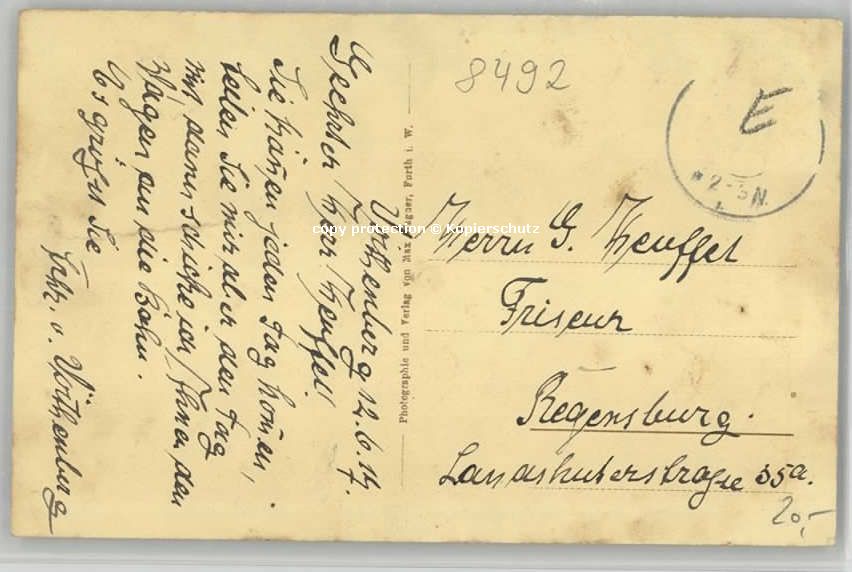 Vöthenberg 12.6.14.
Geehrter Herr Heuffel!
Sie können jeden Tag komen,
teilen Sie mir aber den Tag
mit dann schicke ich Ihnen den
Wagen an die Bahn.
Es grüßt Sie
v. Vöthenberg
Photographie und Verlag von Max, Furth i. W.
8492
E
2-3 N.
Herrn G. Heuffel
Friseur
Regensburg.
Landshuterstraße 35a.
20,-
copy protection © Kopierschutz